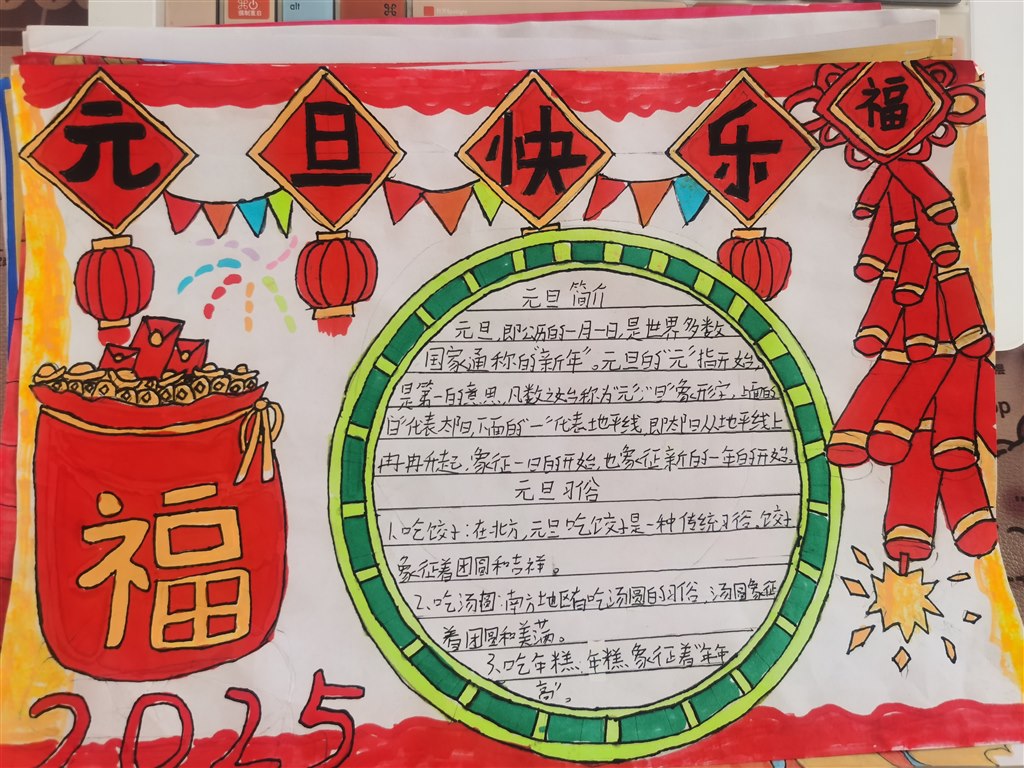 强制重启
alt
⌘
元旦快乐
福
元旦简介
元旦,即公历的一月一日,是世界多数
国家通称的“新年”。元旦的“元”指开始,
是第一的意思,凡数之始称为“元”;“旦”象形字,上面的
“日”代表太阳,下面的“一”代表地平线,即太阳从地平线上
冉冉升起,象征一日的开始,也象征新的一年的开始。
元旦习俗
1、吃饺子:在北方,元旦吃饺子是一种传统习俗,饺子
象征着团圆和吉祥。
2、吃汤圆:南方地区有吃汤圆的习俗,汤圆象征
着团圆和美满。
3、吃年糕、年糕象征着“年年
高”。
福
2025